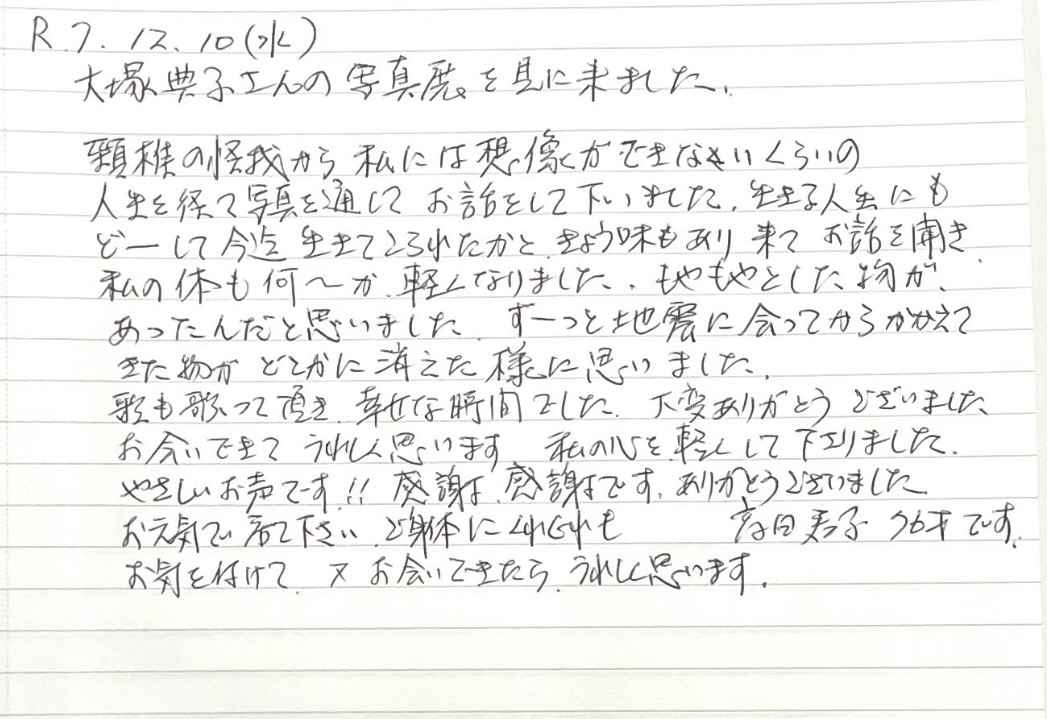 R.7.12.10(水)
大塚典子さんの写真展を見に来ました。
頚椎の怪我から私には想像ができなないくらいの
人生を経て写真を通してお話をして下いました。生きる人生にも
どーして今迄生きてこられたかと、きょう味もあり来てお話を聞き
私の体も何〜か軽くなりました。もやもやとした物が、
あったんだと思いました。ずーっと地震に会ってからかかえて
きた物がどこかに消えた様に思いました。
歌も歌って頂き、幸せな時間でした。大変ありがとうございました
お会いできてうれしく思います。私の心を軽くして下さりました。
やさしいお声です!!感謝、感謝です。ありがとうございました
お元気で居て下さい。ご身体にくれぐれも 子 76才です。
お気を付けて、又お会いできたら、うれしく思います。